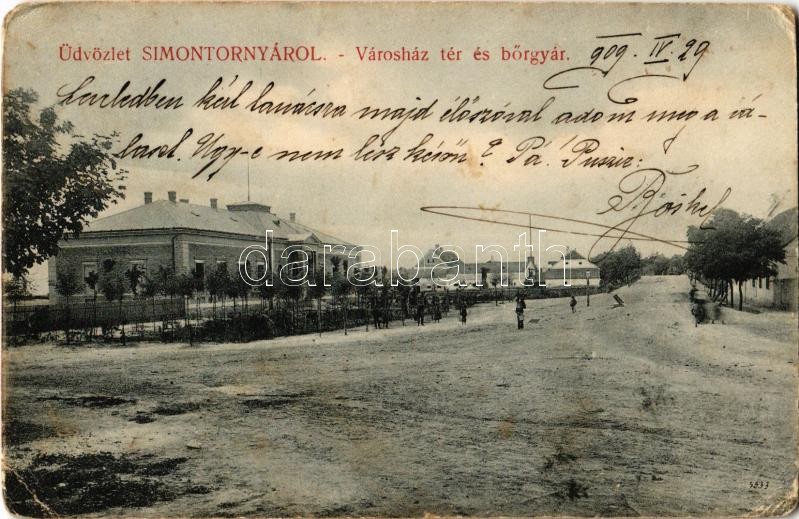 Üdvözlet SIMONTORNYÁROL. - Városház tér és bőrgyár.
909. IV. 29
Levledben kért tanácsra majd élőszóval adom meg a vá-
laszt. Ugy-e nem lesz késön? Pá. Puszi:
Böske
darabanth
5533